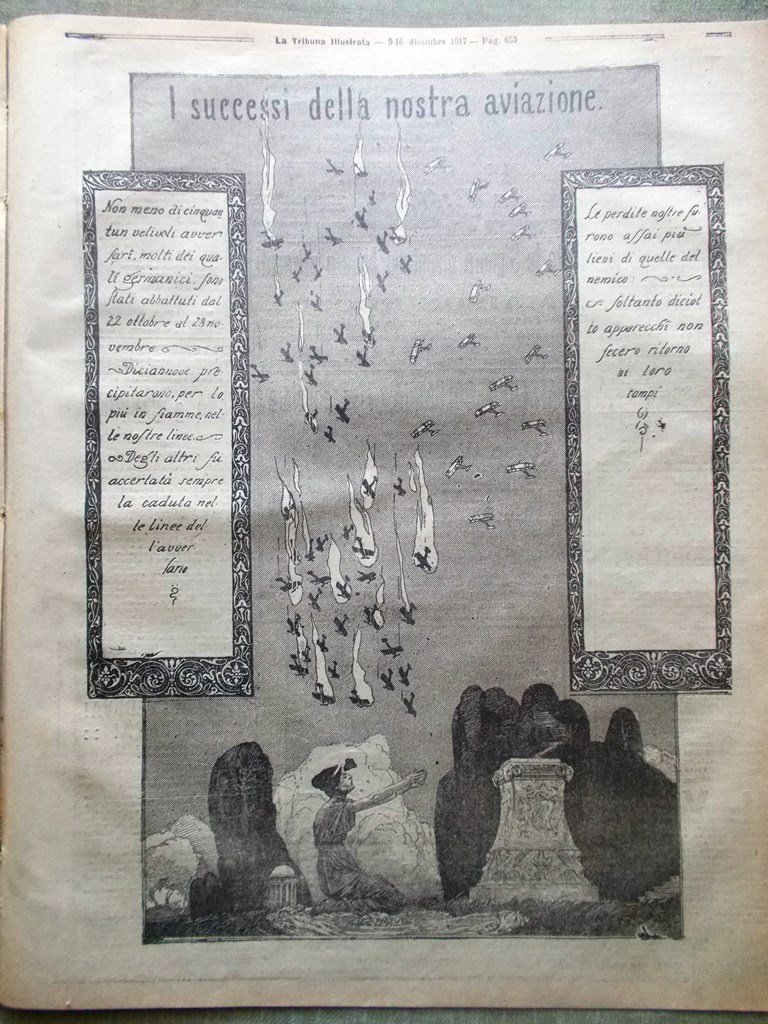 La Tribuna Illustrata — 9-16 dicembre 1917 — Pag. 653
I successi della nostra aviazione.
Non meno di cinquan
tun velivoli avver
sarî, molti dei qua-
li germanici, sono
stati abbattuti dal
22 ottobre al 23 no
vembre
Diciannove pre
cipitarono, per lo
più in fiamme, nel-
le nostre linee.
Degli altri fu
accertata sempre
la caduta nel-
le linee del
l'avver
sario
Le perdite nostre fu
rono assai più
lievi di quelle del
nemico:
soltanto diciot
to apparecchi non
fecero ritorno
ai loro
campi